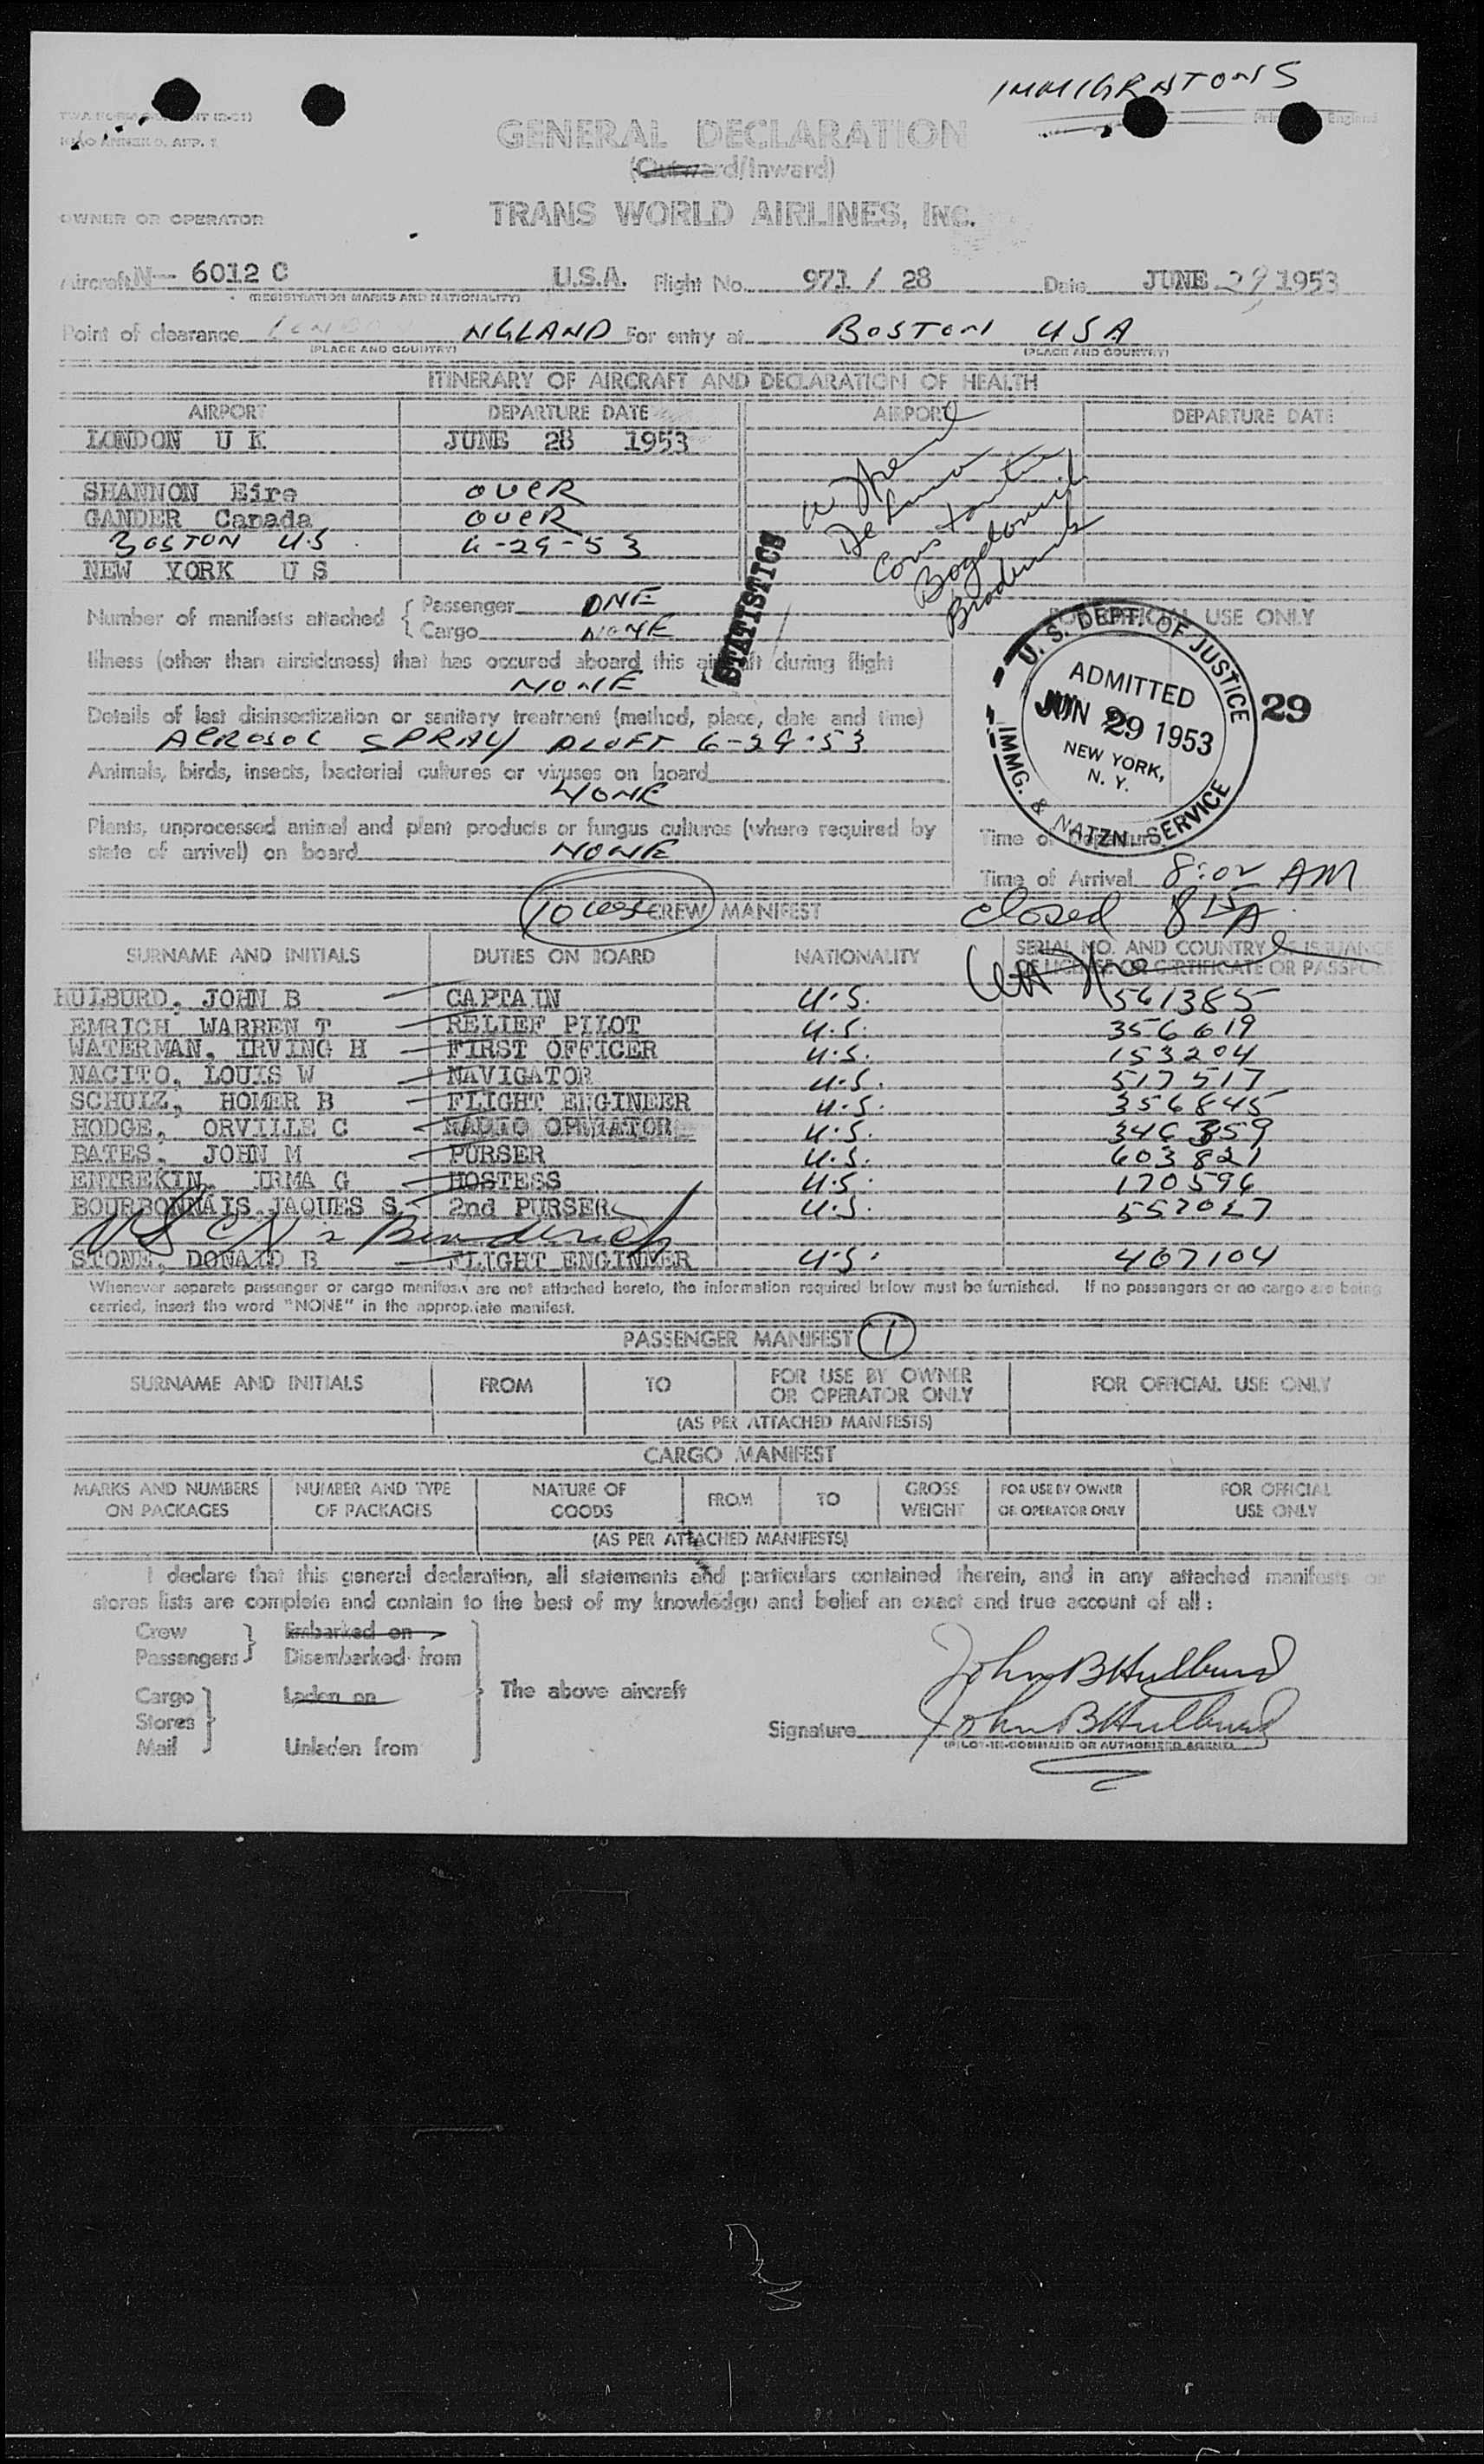 IMMIGRATONS
GENERAL DECLARATION
(Outward/Inward)
OWNER OR OPERATOR TRANS WORLD AIRLINES, INC.
Aircraft N- 6012 C U.S.A. Flight No. 971 / 28 Date JUNE 29, 1953
(REGISTRATION MARKS AND NATIONALITY)
Point of clearance LONDON NGLAND For entry at BOSTON USA
(PLACE AND COUNTRY) (PLACE AND COUNTRY)
ITINERARY OF AIRCRAFT AND DECLARATION OF HEALTH
AIRPORT DEPARTURE DATE AIRPORT DEPARTURE DATE
LONDON U K JUNE 28 1953
SHANNON Eire OVER
GANDER Canada OVER
BOSTON U.S 6-29-53
NEW YORK U S
STATISTICS
Number of manifests attached { Passenger ONE
Cargo NONE
FOR OFFICIAL USE ONLY
Illness (other than airsickness) that has occured aboard this aircraft during flight
NONE
Details of last disinsectization or sanitary treatment (method, place, date and time)
AEROSOL SPRAY ALOFT 6-29-53
Animals, birds, insects, bacterial cultures or viruses on board
NONE
Plants, unprocessed animal and plant products or fungus cultures (where required by
state of arrival) on board NONE
U. S. DEPT. OF JUSTICE
ADMITTED
JUN 29 1953
NEW YORK,
N. Y.
IMMG. & NATZN. SERVICE
29
Time of Departure
Time of Arrival 8:02 AM
closed 8 15 A
10 CREW MANIFEST
SURNAME AND INITIALS DUTIES ON BOARD NATIONALITY SERIAL NO. AND COUNTRY OF ISSUANCE
OF LICENSE OR CERTIFICATE OR PASSPORT
HULBURD, JOHN B CAPTAIN U.S. 561385
EMRICH WARREN T RELIEF PILOT U.S. 356619
WATERMAN, IRVING H FIRST OFFICER U.S. 153204
NACITO, LOUIS W NAVIGATOR U.S. 517517
SCHULZ, HOMER B FLIGHT ENGINEER U.S. 356845
HODGE, ORVILLE C RADIO OPERATOR U.S. 346359
BATES, JOHN M PURSER U.S. 603821
ENTREKIN, IRMA G HOSTESS U.S. 170596
BOURBONNAIS, JAQUES S. 2nd PURSER U.S. 557027
STONE, DONALD B FLIGHT ENGINEER U.S. 467104
Whenever separate passenger or cargo manifests are not attached hereto, the information required below must be furnished. If no passengers or no cargo are being
carried, insert the word "NONE" in the appropriate manifest.
PASSENGER MANIFEST 1
SURNAME AND INITIALS FROM TO FOR USE BY OWNER OR OPERATOR ONLY FOR OFFICIAL USE ONLY
(AS PER ATTACHED MANIFESTS)
CARGO MANIFEST
MARKS AND NUMBERS ON PACKAGES NUMBER AND TYPE OF PACKAGES NATURE OF GOODS FROM TO GROSS WEIGHT FOR USE BY OWNER OR OPERATOR ONLY FOR OFFICIAL USE ONLY
(AS PER ATTACHED MANIFESTS)
I declare that this general declaration, all statements and particulars contained therein, and in any attached manifests or
stores lists are complete and contain to the best of my knowledge and belief an exact and true account of all :
Crew Embarked on
Passengers Disembarked from
Cargo Laden on The above aircraft
Stores
Mail Unladen from
John B Hulburd
Signature John B Hulburd
(PILOT-IN-COMMAND OR AUTHORIZED AGENT)